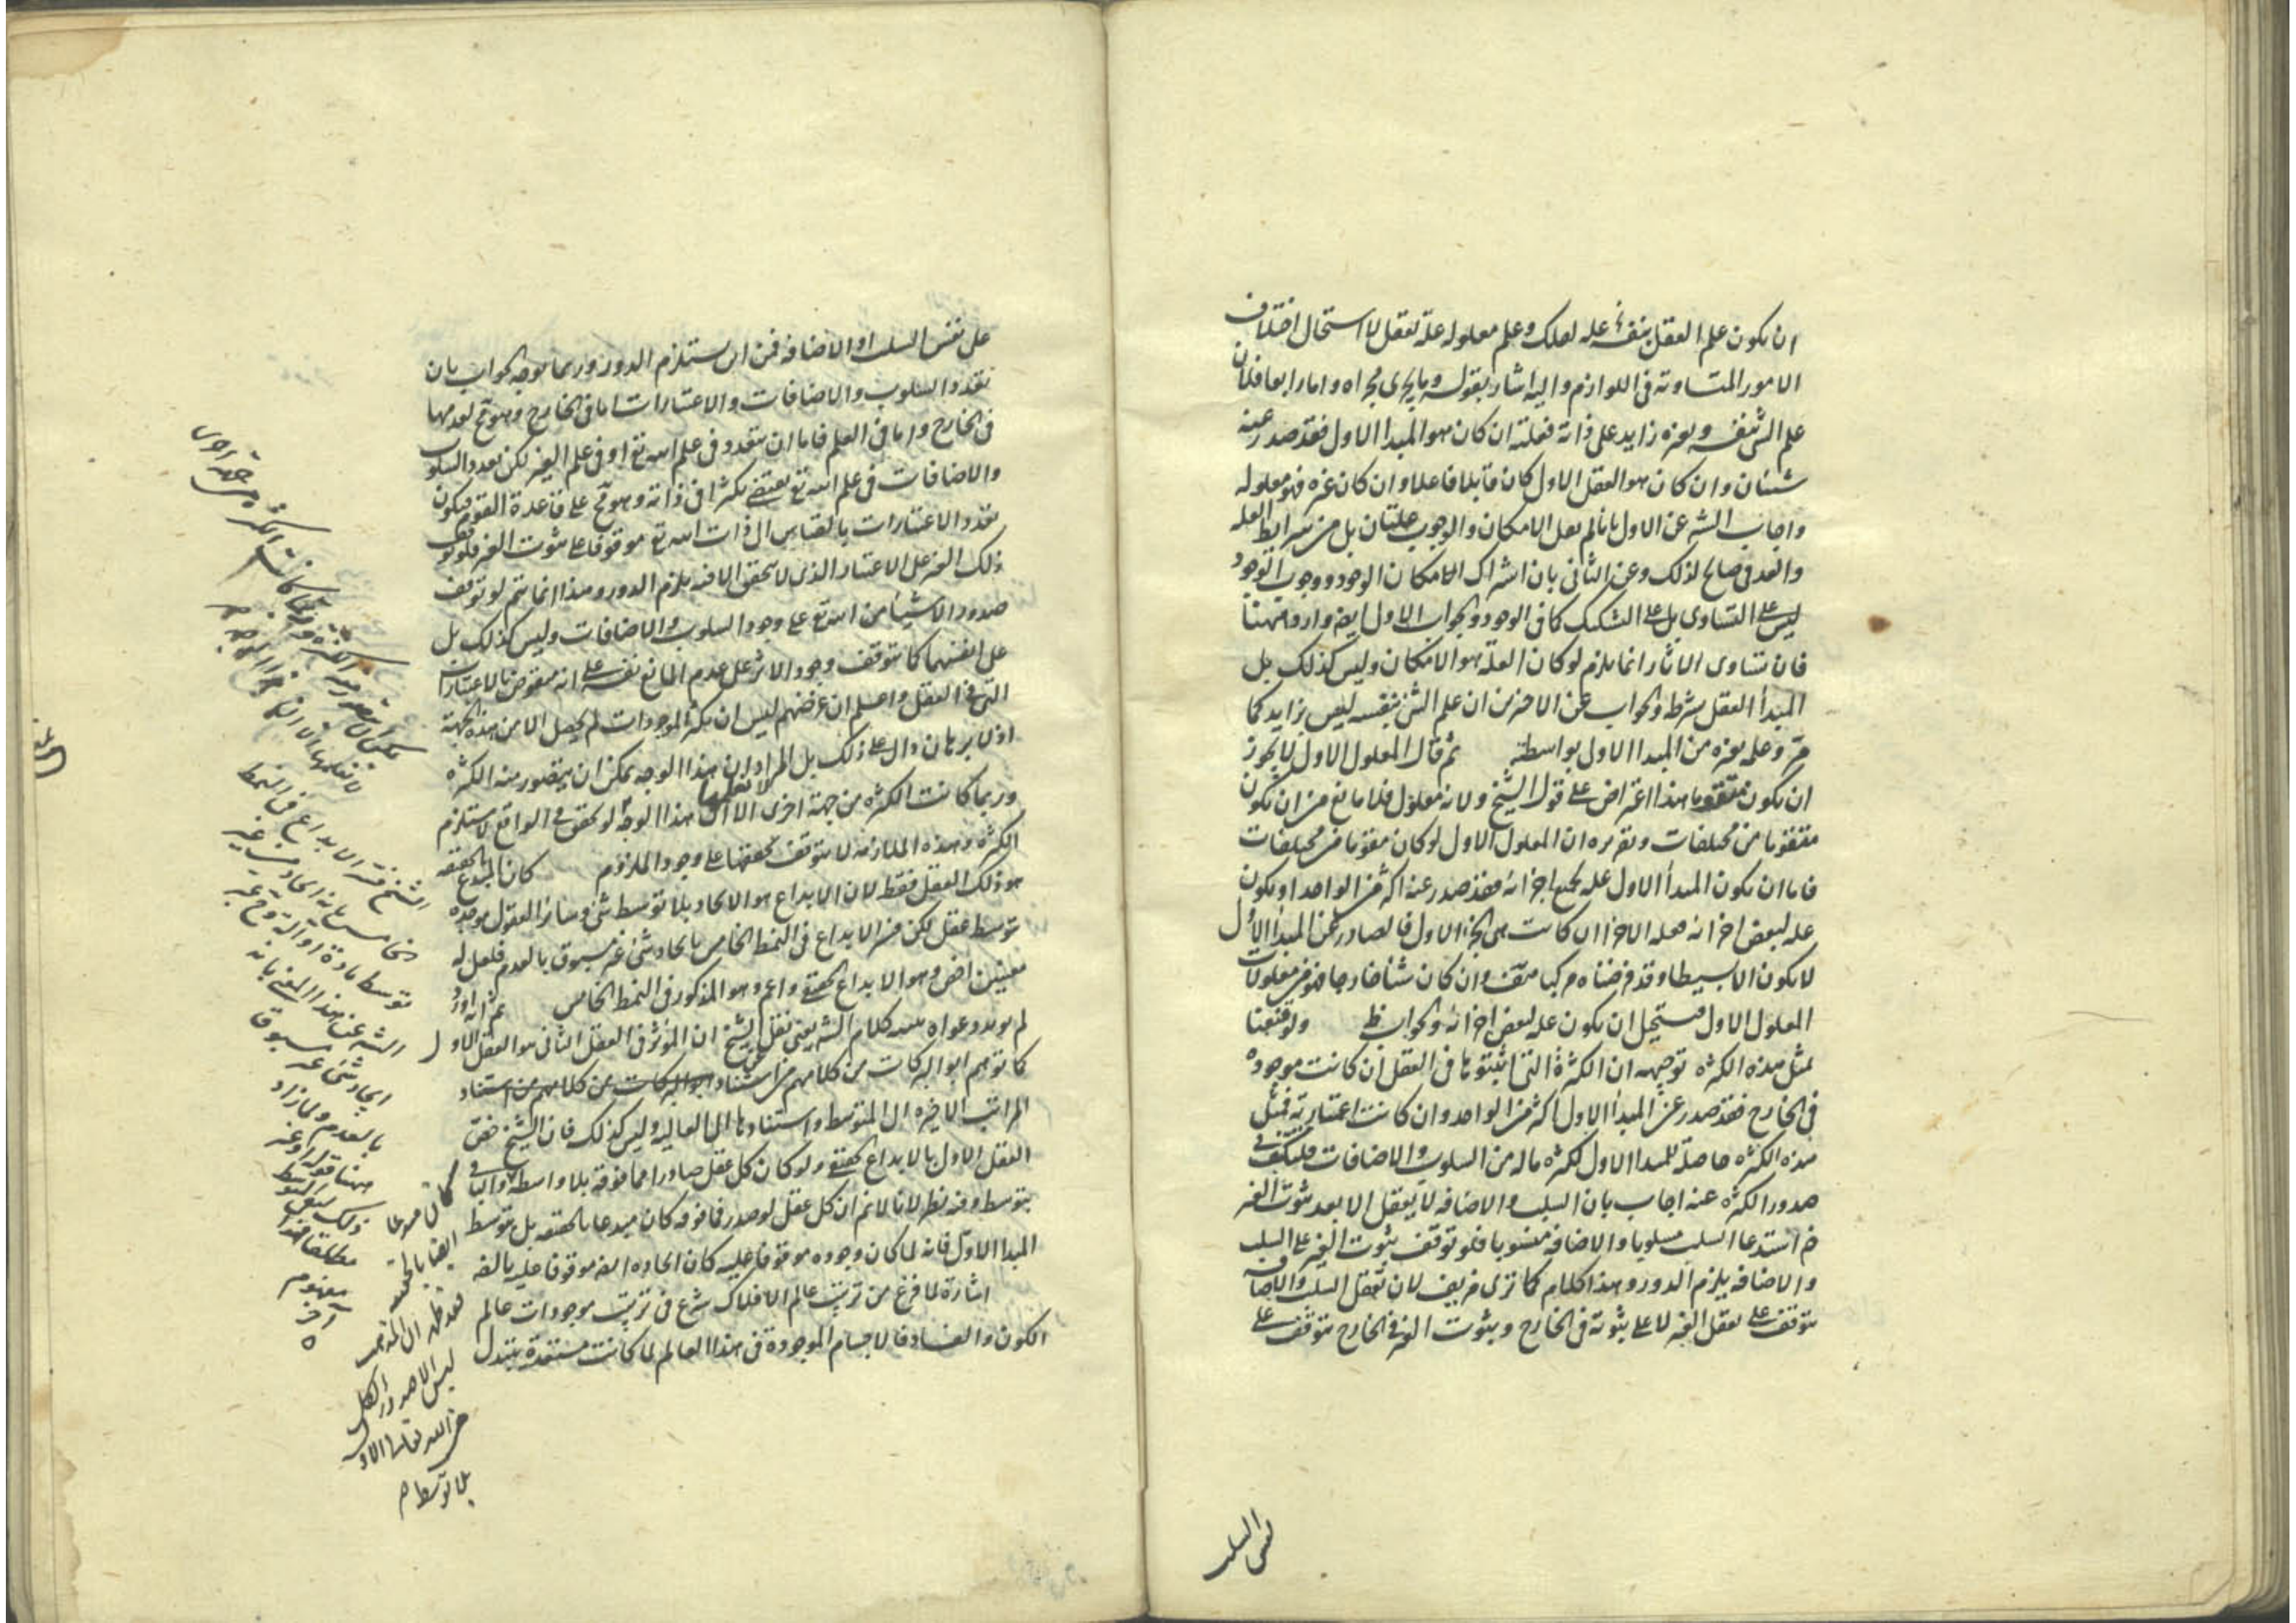 ان يكون علم العقل بنفسه علة لفلك وعلم معلوله علة لعقل لاستحال اختلاف
الامور المتساوية فى اللوازم واليه اشار بقوله وما يجرى مجراه واما رابعا فلان
علم الشئ بنفسه وبغيره زايد على ذاته فعلته ان كان هو المبدا الاول فقد صدر عنه
شيئان وان كان هو العقل الاول كان قابلا فاعلا وان كان غيره فهو معلوله
واجاب الشه عن الاول بانا لم نعل الامكان والوجوب علتان بل من شرايط العله
والعدمى صالح لذلك وعن الثانى بان اشتراك الامكان الوجود ووجوب الوجود
ليس على التساوى بل على التشكيك كما فى الوجود والجواب الاول ايضا وارد ههنا
فان تساوى الاثار انما يلزم لو كان العلة هو الامكان وليس كذلك بل
المبدأ العقل بشرطه والجواب عن الاخيرين ان علم الشئ بنفسه ليس بزايد كما
مرّ وعلمه بغيره من المبدا الاول بواسطته ثم قال المعلول الاول لا يجوز
ان يكون متقوما هذا اعتراض على قول الشيخ ولانه معلول فلا مانع من ان يكون
متقوما من مختلفات وتقريره ان المعلول الاول لو كان مقوما من مختلفات
فاما ان يكون المبدأ الاول علة لجميع اجزائه فقد صدر عنه اكثر من الواحد او يكون
علة لبعض اجزائه فعلة الاخر ان كانت هى الجزء الاول فالصادر عن المبدا الاول
لا يكون الا بسيطا وقد فرضناه مركبا هف وان كان شيئا خارجا فهو من معلولات
المعلول الاول فيستحيل ان يكون علة لبعض اجزائه والجواب ظ ولو قنعنا
بمثل هذه الكثرة توجيهه ان الكثرة التى اثبتوها فى العقل ان كانت موجودة
فى الخارج فقد صدر عن المبدأ الاول اكثر من الواحد وان كانت اعتبارية فمثل
هذه الكثرة حاصلة للمبدا الاول لكثرة ماله من السلوب والاضافات فليكف فى
صدور الكثرة عنه اجاب بان السلب والاضافة لا يعقل الا بعد ثبوت الغير
ض استدعا السلب مسلوبا والاضافة منسوبا فلو توقف ثبوت الغير على السلب
والاضافة يلزم الدور وهذا الكلام كما ترى مزيف لان تعقل السلب والاضافه
يتوقف على تعقل الغير لا على ثبوته فى الخارج وثبوت الغير فى الخارج يتوقف على
نفس السلب
على نفس السلب او الاضافه فمن اين يستلزم الدور وربما يوجه الجواب بان
تعدد السلوب والاضافات والاعتبارات اما فى الخارج وهو مح لعدمها
فى الخارج واما فى العلم فاما ان يتعدد فى علم الله تع او فى علم الغير لكن تعدد السلوب
والاضافات فى علم الله تع يقتضى تكثرا فى ذاته وهو مح على قاعدة القوم فيكون
تعدد الاعتبارات بالقياس الى ذات الله تع موقوفا على ثبوت الغير فلو توقف
ذلك الغير على الاعتبار الذى لا يتحقق الا فيه يلزم الدور وهذا انما يتم لو توقف
صدور الاشياء من الله تع على وجود السلوب والاضافات وليس كذلك بل
على انفسهما كما يتوقف وجود الاثر على عدم المانع نفسه على انه منقوض بالاعتبارات
التى فى العقل واعلم ان غرضهم ليس ان تكثر الموجودات لم يحصل الا من هذه الجهة
اذ لا برهان دال على ذلك بل المراد ان هذا الوجه يمكن ان يتصور منه الكثره
وربما كانت الكثرة من جهة اخرى لا نعقلها الا ان هذا الوجه لو تحقق فى الواقع لاستلزم
الكثرة وهذه الملازمة لا يتوقف تحققها على وجود الملزوم كان المبدع بالحقيقه
هو ذلك العقل فقط لان الابداع هو الايجاد بلا توسط شئ وساير العقول موجده
بتوسط عقل لكن فسر الابداع فى النمط الخامس بايجاد شئ غير مسبوق بالعدم فلعل له
معنيين اخص وهو الابداع الحقيقى واعم وهو المذكور فى النمط الخامس ثم انه اورد
لم يورد دعواه بينه كلام الشه يعنى نقل الشيخ ان المؤثر فى العقل الثانى هو العقل الاول
كما توهم ابو البركات من كلامهم من استناد ابو البركات من كلامهم من استناد
المراتب الاخيرة الى المتوسطة واستنادها الى العالية وليس كذلك فان الشيخ خص
العقل الاول بالابداع الحقيقى ولو كان كل عقل صادرا مما فوقه بلا واسطه والباقى
بتوسط وفيه نظر لانا لا نم ان كل عقل لو صدر مما فوقه كان مبدعا بالحقيقه بل بتوسط
المبدا الاول فانه لما كان وجوده موقوفا عليه كان ايجاده ايضا موقوفا عليه بالضرورة
اشارة لما فرغ من ترتيب عالم الافلاك شرع فى ترتيب موجودات عالم
الكون والفساد فالاجسام الموجودة فى هذا العالم لما كانت مستعدة تتبدل
الشيخ فسر الابداع فى النمط
الخامس بانه ايجاد شئ غير
توسط مادة او الة وغيره
الشه عن هذا المعنى بانه
ايجاد شئ غير مسبوق
بالعدم ولما زاد
ههنا قوله وغير
ذلك لنفى التوسط
مطلقا فهذا
مفهوم
آخر
كان مبدعا
ايضا بالحقيقه
فقد ظهر ان المذهب
ليس الا صدور الكل
من الله تعالى الاول
بلا توسط